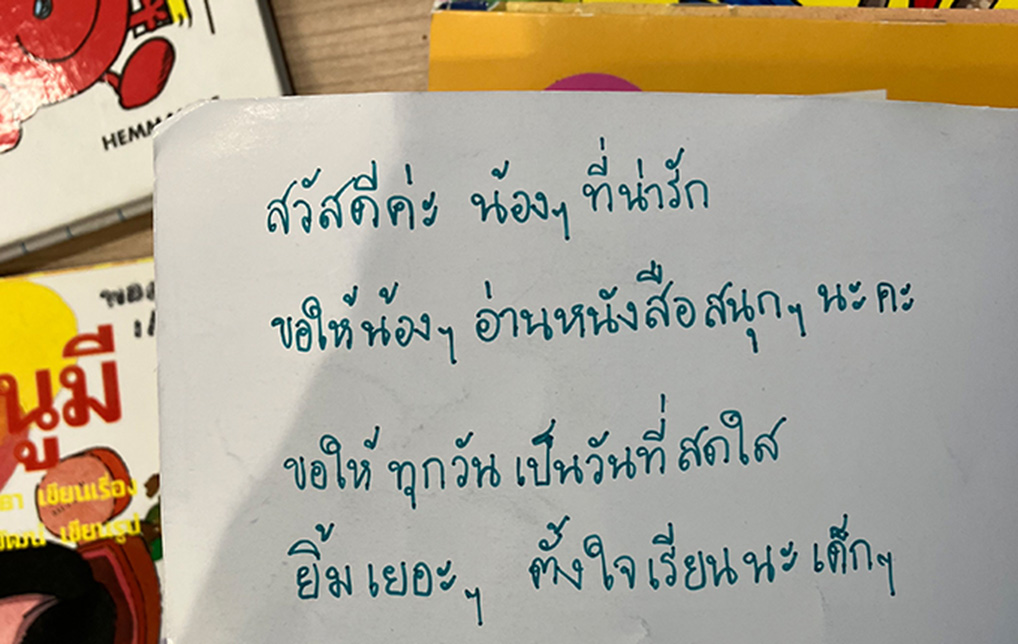 สวัสดีค่ะ น้องๆ ที่น่ารัก
ขอให้น้องๆ อ่านหนังสือสนุกๆ นะคะ
ขอให้ ทุกวัน เป็นวันที่ สดใส
ยิ้มเยอะๆ ตั้งใจเรียนนะเด็กๆ
นูมี
เขียนเรื่อง
เขียนรูป